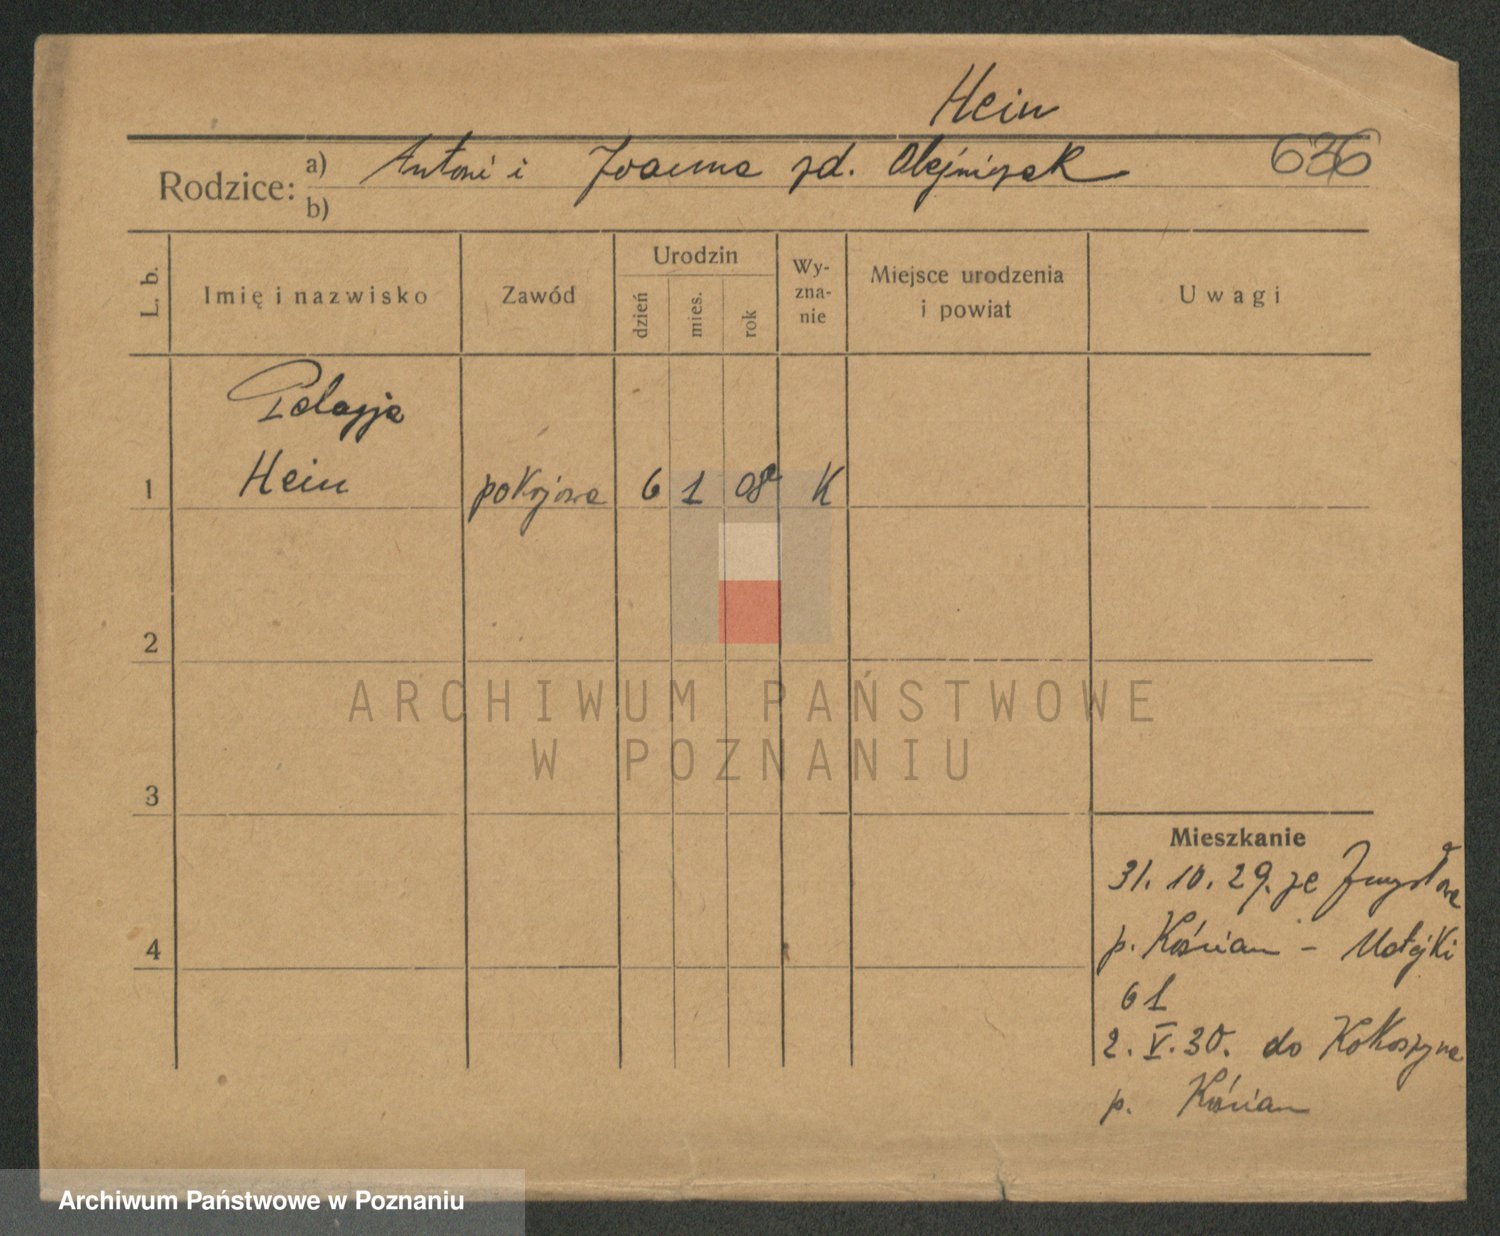 Hein
Rodzice: a) Antoni i Joanna zd. Olejniczak 636
b)
L. b. Imię i nazwisko Zawód Urodzin dzień mies. rok Wyznanie Miejsce urodzenia i powiat Uwagi
Pelagja
1 Hein pokojowa 6 1 08 K
2
ARCHIWUM PAŃSTWOWE
W POZNANIU
3
Mieszkanie
31. 10. 29. ze
4 p. Kościan - Matejki
61
2. V. 30. do Kokoszyna
p. Kościan
Archiwum Państwowe w Poznaniu